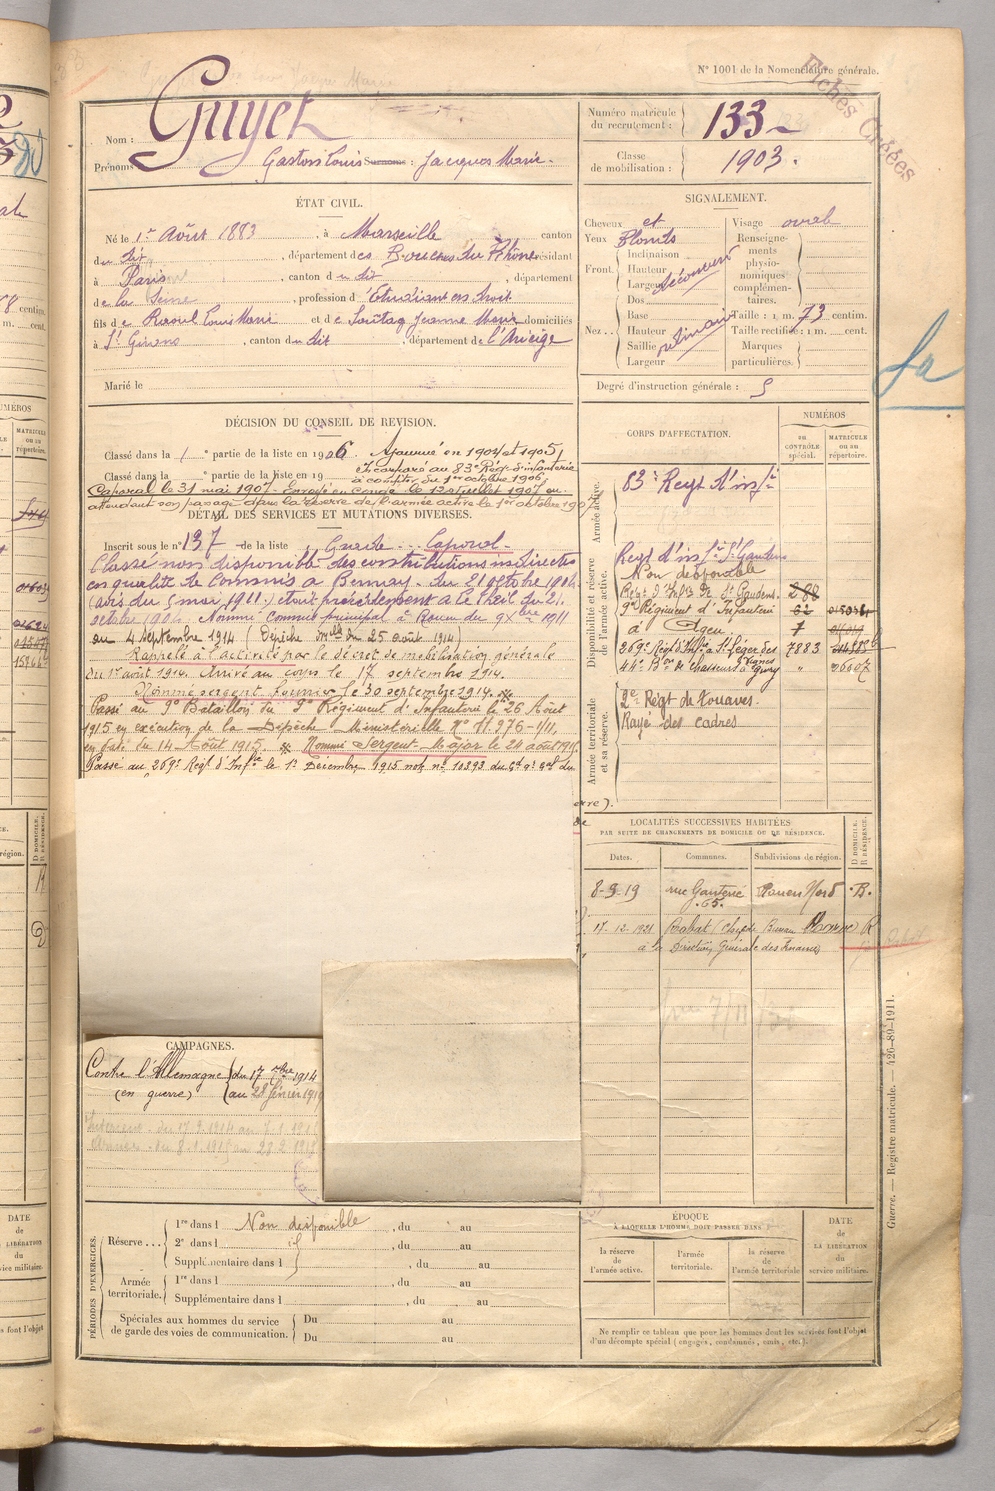 N° 1001 de la Nomenclature générale.
Fiches Créées
Nom : Guyet
Prénoms : Gaston Louis Surnoms : Jacques Marie
Numéro matricule du recrutement : 133
Classe de mobilisation : 1903.
ÉTAT CIVIL.
Né le 1er Août 1883, à Marseille canton
du dit, département des Bouches du Rhône résidant
à Paris, canton du dit, département
de la Seine, profession d'Etudiant en droit
fils de Raoul Louis Marie et de Jeanne Marie domiciliés
à St Girons, canton du dit, département de l'Ariège
Marié le
SIGNALEMENT.
Cheveux et
Yeux Blonds
Front. Inclinaison
Hauteur
Largeur
découvert
Nez.. Dos
Base
Hauteur
Saillie
Largeur
ordinaire
Visage ovale
Renseignements physionomiques complémentaires.
Taille : 1 m. 73 centim.
Taille rectifiée : 1 m. cent.
Marques particulières.
Degré d'instruction générale : 5
DÉCISION DU CONSEIL DE REVISION.
Classé dans la 1e partie de la liste en 1906. Ajourné en 1904 et 1905
Classé dans la e partie de la liste en 19
Incorporé au 83e Rég. d'infanterie
à compter du 1er octobre 1906,
Caporal le 31 mai 1907. Envoyé en congé le 12 juillet 1907 en
attendant son passage dans la réserve de l'armée active le 1er octobre 1907
DÉTAIL DES SERVICES ET MUTATIONS DIVERSES.
Inscrit sous le n° 137 de la liste. Guerde . . Caporal.
Classé non disponible des contributions indirectes
en qualité de Commis à Bernay du 21 octobre 1910.
(avis du 5 mai 1911.) était précédemment à Le Theil du 21.
octobre 1904. Nommé Commis principal à Rouen du 9 Xbre 1911
au 4 Septembre 1914 (Dépêche Mlle du 25 août 1914)
Rappelé à l'activité par le décret de mobilisation générale
du 1er août 1914. Arrivé au corps le 17 septembre 1914.
Nommé sergent fourrier le 30 septembre 1914.
Passé au 9e Bataillon du 9e Régiment d'Infanterie le 26 Août
1915 en exécution de la Dépêche Ministérielle N° 11976-1/11,
en date du 14 Août 1915. Nommé Sergent-Major le 24 août 1915
Passé au 269e Régt d'Infie le 1er Décembre 1915 note n° 10393 du Gd Qr Gal du
CORPS D'AFFECTATION.
NUMÉROS
au CONTRÔLE spécial.
MATRICULE ou au répertoire.
Armée active.
83e Régt d'infie
Disponibilité et réserve de l'armée active.
Régt d'infie St Gaudens
Non disponible
Régt d'Infie de St Gaudens. 288
9e Régiment d'Infanterie 62 015024
à Agen 7
269e Régt d'Infie à St Léger des Vignes 7883
44e Bon de Chasseurs à Givry " 26607
Armée territoriale et sa réserve.
2e Régt de Zouaves.
Rayé des cadres
LOCALITÉS SUCCESSIVES HABITÉES
PAR SUITE DE CHANGEMENTS DE DOMICILE OU DE RÉSIDENCE.
Dates. Communes. Subdivisions de région. D DOMICILE. R RÉSIDENCE.
8-9-19 rue Ganterie 65. Rouen Nord R.
17-12-1921 Rabat (Chef de Bureau R
à la Direction Générale des Finances)
CAMPAGNES.
Contre l'Allemagne du 17 7bre 1914
(en guerre) au 28 février 1919
Intérieur du 17 9 1914 au 7 1 1915
Armées du 8 1 1915 au 28 2 1919
PÉRIODES D'EXERCICES.
Réserve.... 1re dans l Non disponible, du au
2e dans l id, du au
Supplémentaire dans l, du au
Armée territoriale. 1re dans l, du au
Supplémentaire dans l, du au
Spéciales aux hommes du service de garde des voies de communication. Du au
Du au
ÉPOQUE
À LAQUELLE L'HOMME DOIT PASSER DANS
la réserve de l'armée active.
l'armée territoriale.
la réserve de l'armée territoriale
DATE de LA LIBÉRATION du service militaire.
Ne remplir ce tableau que pour les hommes dont les services font l'objet
d'un décompte spécial (engagés, condamnés, omis, etc.).
Guerre. — Registre matricule. — 426-89-1911.